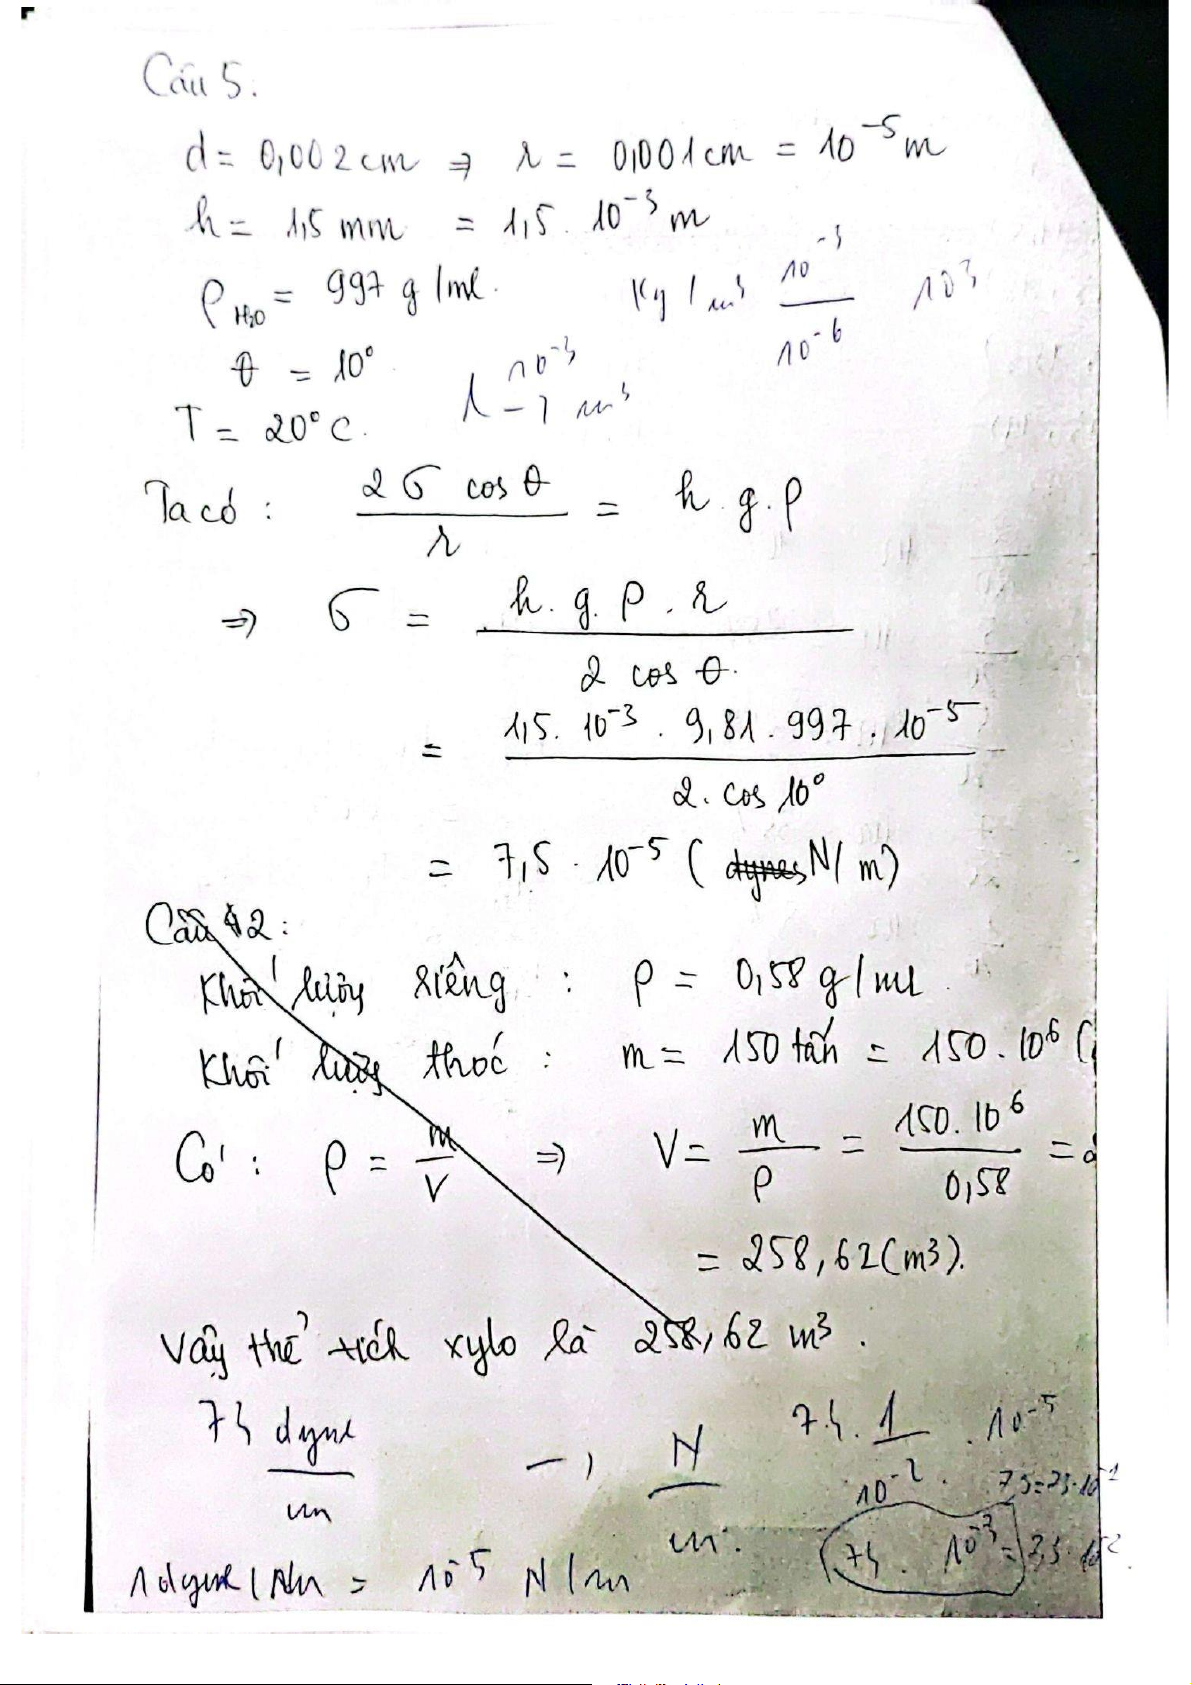 Câu 5.
d = 0,002 cm ⇒ r = 0,001 cm = 10⁻⁵ m
h = 1,5 mm = 1,5 . 10⁻³ m
ρ H₂O = 997 g/ml. Kg/m³ 10⁻³/10⁻⁶ 10³
θ = 10°
10⁻³ m³
T = 20°C.
Ta có : 2σ cos θ / r = h . g . ρ
⇒ σ = h . g . ρ . r / 2 cos θ.
= 1,5 . 10⁻³ . 9,81 . 997 . 10⁻⁵ / 2 . cos 10°
= 7,5 . 10⁻⁵ ( dynes N/m)
Câu 2 :
Khối lượng riêng : ρ = 0,58 g/ml
Khối lượng thóc : m = 150 tấn = 150 . 10⁶ (
Có : ρ = m/V ⇒ V = m/ρ = 150 . 10⁶ / 0,58 =
= 258,62 (m³).
Vậy thể tích xylo là 258,62 m³.
10⁻⁵
N/m
10⁻²
10⁻³
= 10⁻⁵ N/m